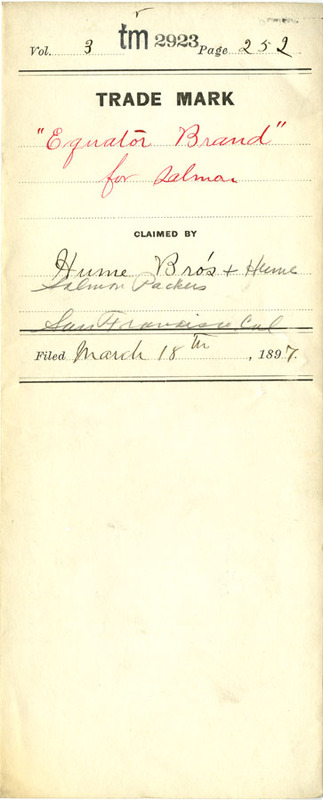 Vol. 3 tm 2923 Page 252
TRADE MARK
"Equator Brand"
for Salmon
CLAIMED BY
Hume Bro's + Hume
Salmon Packers
San Francisco, Cal
Filed March 18th, 1897.